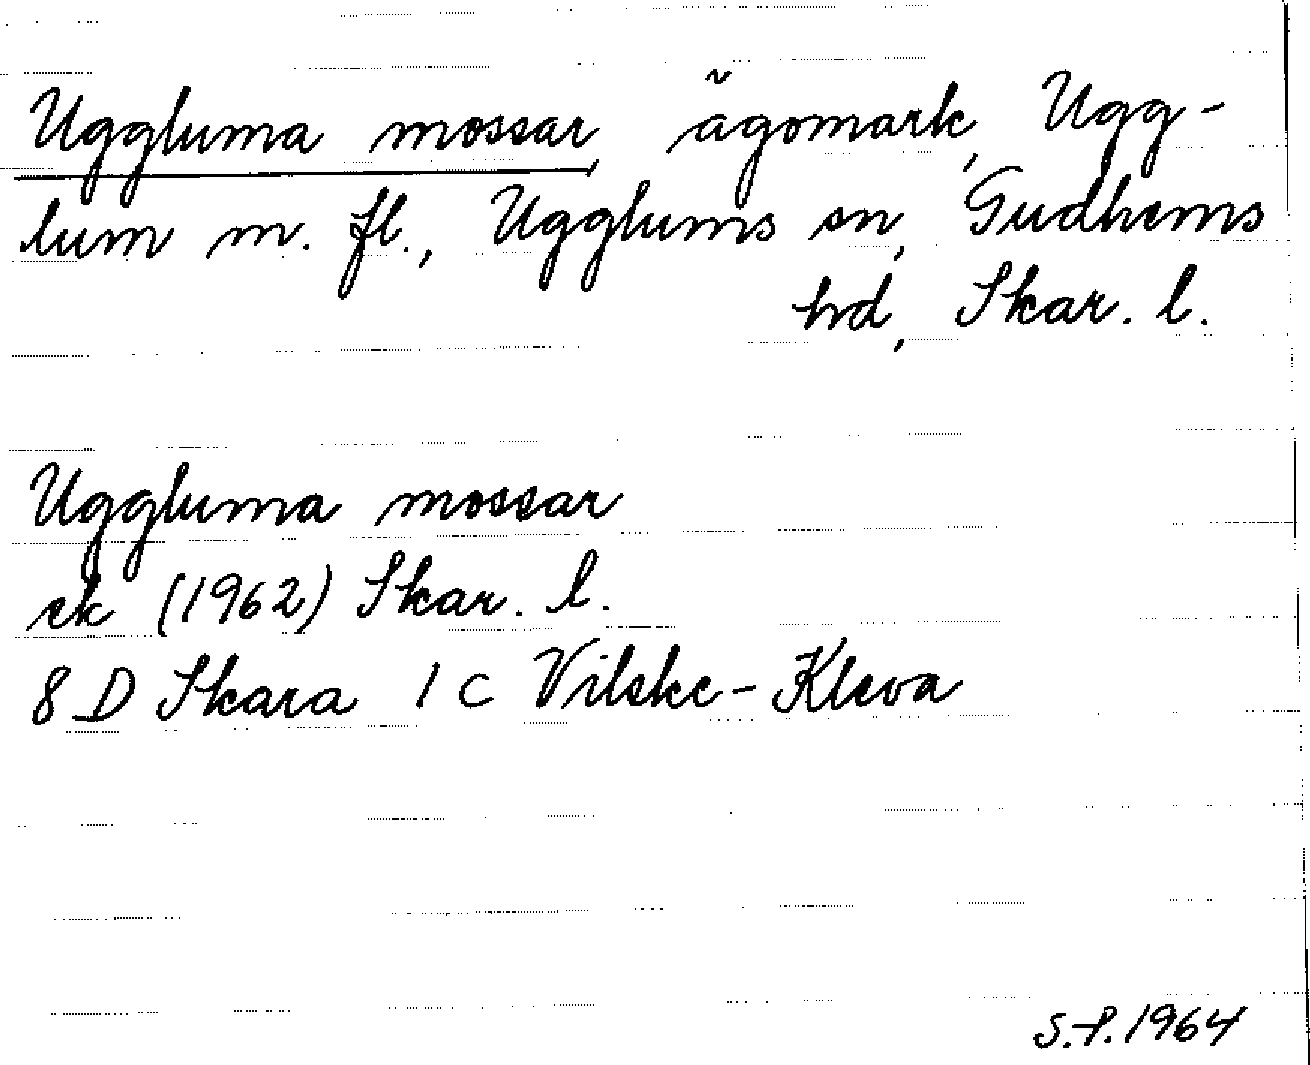 Uggluma mossar, ägomark, Ugg-
lum m. fl., Ugglums sn, Gudhems
hd, Skar. l.
Uggluma mossar
ek (1962) Skar. l.
8 D Skara 1 C Vilske-Kleva
S.P. 1964